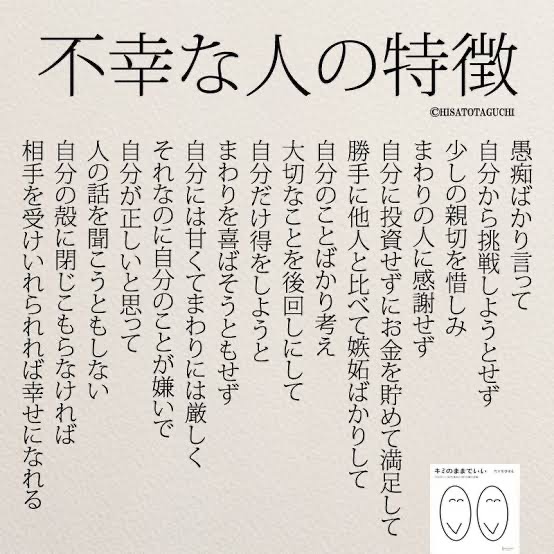 不幸な人の特徴
©HISATOTAGUCHI
愚痴ばかり言って
自分から挑戦しようとせず
少しの親切を惜しみ
まわりの人に感謝せず
自分に投資せずにお金を貯めて満足して
勝手に他人と比べて嫉妬ばかりして
自分のことばかり考え
大切なことを後回しにして
自分だけ得をしようと
まわりを喜ばそうともせず
自分には甘くてまわりには厳しく
それなのに自分のことが嫌いで
自分が正しいと思って
人の話を聞こうともしない
自分の殻に閉じこもらなければ
相手を受けいれられれば幸せになれる
キミのままでいい